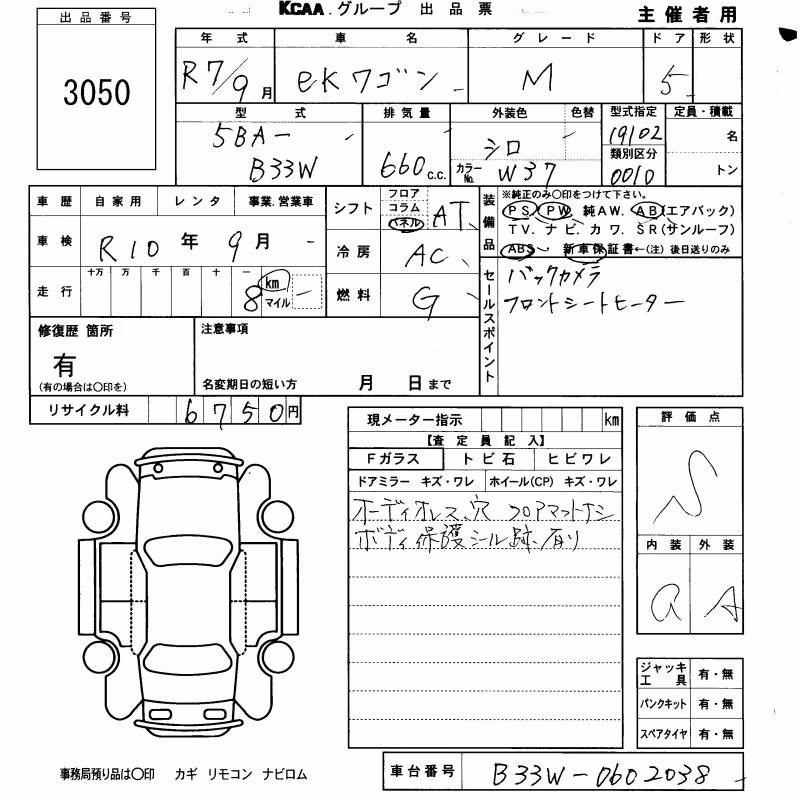 KCAA.グループ 出品票
主催者用
出品番号
3050
年式 車名 グレード ドア 形状
R7/9月 eKワゴン M 5
型式 排気量 外装色 色替 型式指定 定員・積載
5BA- B33W 660 c.c. シロ カラーNo. W37 19102 名
類別区分
0010 トン
車歴 自家用 レンタ 事業.営業車
車検 R10年 9月
走行 十万 万 千 百 十 一 km
8 マイル
シフト フロア コラム パネル AT
冷房 AC
燃料 G
装備品
※純正のみ〇印をつけて下さい。
PS. PW. 純AW. AB(エアバック)
TV. ナビ. カワ. SR(サンルーフ)
ABS 新車保証書←(注)後日送りのみ
セールスポイント
バックカメラ
フロントシートヒーター
修復歴 箇所
有
(有の場合は〇印を)
注意事項
名変期日の短い方 月 日まで
リサイクル料 6750円
現メーター指示 km
【査定員記入】
Fガラス トビ石 ヒビワレ
ドアミラー キズ・ワレ ホイール(CP) キズ・ワレ
オーディオレス、穴 フロアマットナシ
ボディ保護シール跡有り
評価点
S
内装 外装
A
ジャッキ工具 有・無
パンクキット 有・無
スペアタイヤ 有・無
事務局預り品は〇印 カギ リモコン ナビロム
車台番号 B33W-0602038